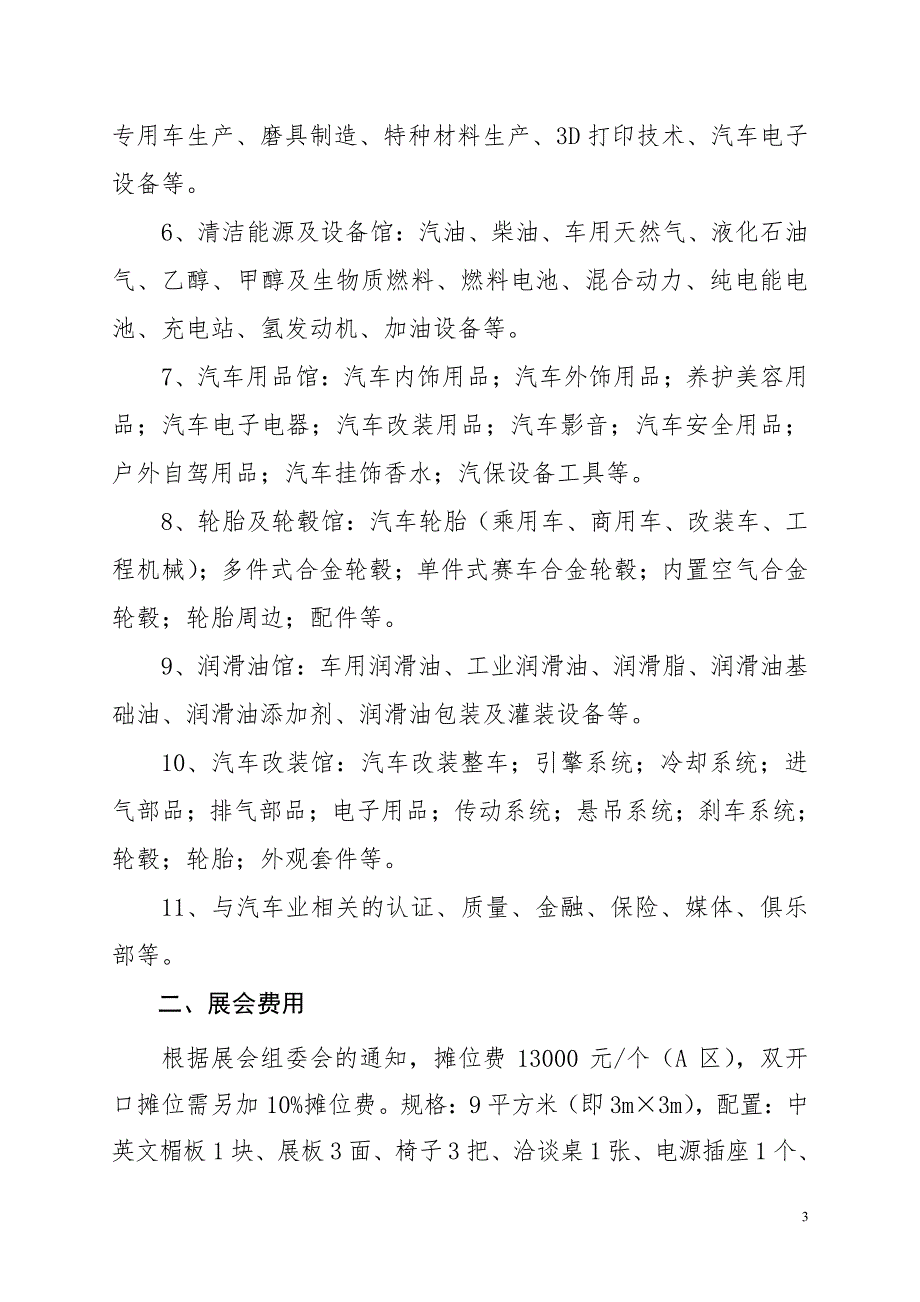 专用车生产、磨具制造、特种材料生产、3D 打印技术、汽车电子
设备等。
6、清洁能源及设备馆：汽油、柴油、车用天然气、液化石油
气、乙醇、甲醇及生物质燃料、燃料电池、混合动力、纯电能电
池、充电站、氢发动机、加油设备等。
7、汽车用品馆：汽车内饰用品；汽车外饰用品；养护美容用
品；汽车电子电器；汽车改装用品；汽车影音；汽车安全用品；
户外自驾用品；汽车挂饰香水；汽保设备工具等。
8、轮胎及轮毂馆：汽车轮胎（乘用车、商用车、改装车、工
程机械）；多件式合金轮毂；单件式赛车合金轮毂；内置空气合金
轮毂；轮胎周边；配件等。
9、润滑油馆：车用润滑油、工业润滑油、润滑脂、润滑油基
础油、润滑油添加剂、润滑油包装及灌装设备等。
10、汽车改装馆：汽车改装整车；引擎系统；冷却系统；进
气部品；排气部品；电子用品；传动系统；悬吊系统；刹车系统；
轮毂；轮胎；外观套件等。
11、与汽车业相关的认证、质量、金融、保险、媒体、俱乐
部等。
二、展会费用
根据展会组委会的通知，摊位费 13000 元/个（A 区），双开
口摊位需另加 10%摊位费。规格：9 平方米（即 3m×3m），配置：中
英文楣板 1 块、展板 3 面、椅子 3 把、洽谈桌 1 张、电源插座 1 个、
3